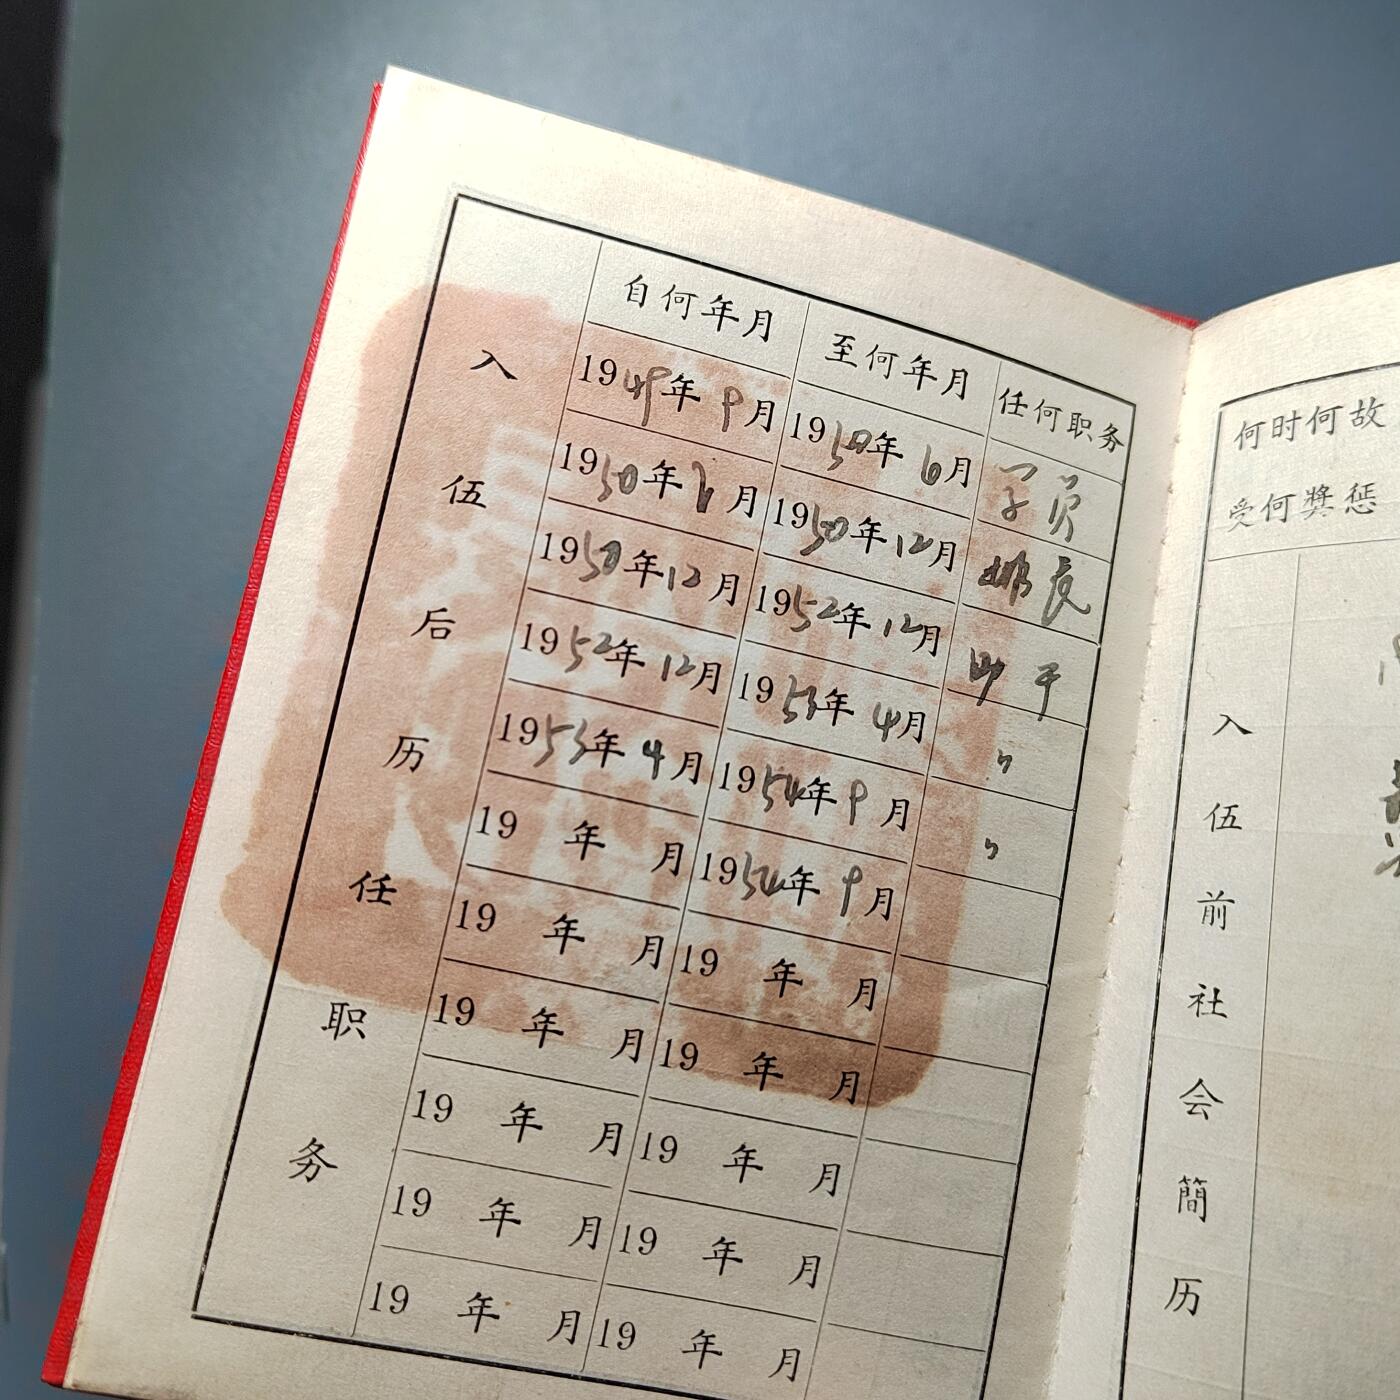 入伍后历任职务
自何年月 至何年月 任何职务
1949年9月 1950年6月 学员
1950年6月 1950年12月 排长
1950年12月 1952年12月 助干
1952年12月 1953年4月 〃
1953年4月 1954年9月 〃
19 年 月 1954年9月
19 年 月 19 年 月
19 年 月 19 年 月
19 年 月 19 年 月
19 年 月 19 年 月
19 年 月 19 年 月
何时何故
受何奖惩
入伍前社会簡历